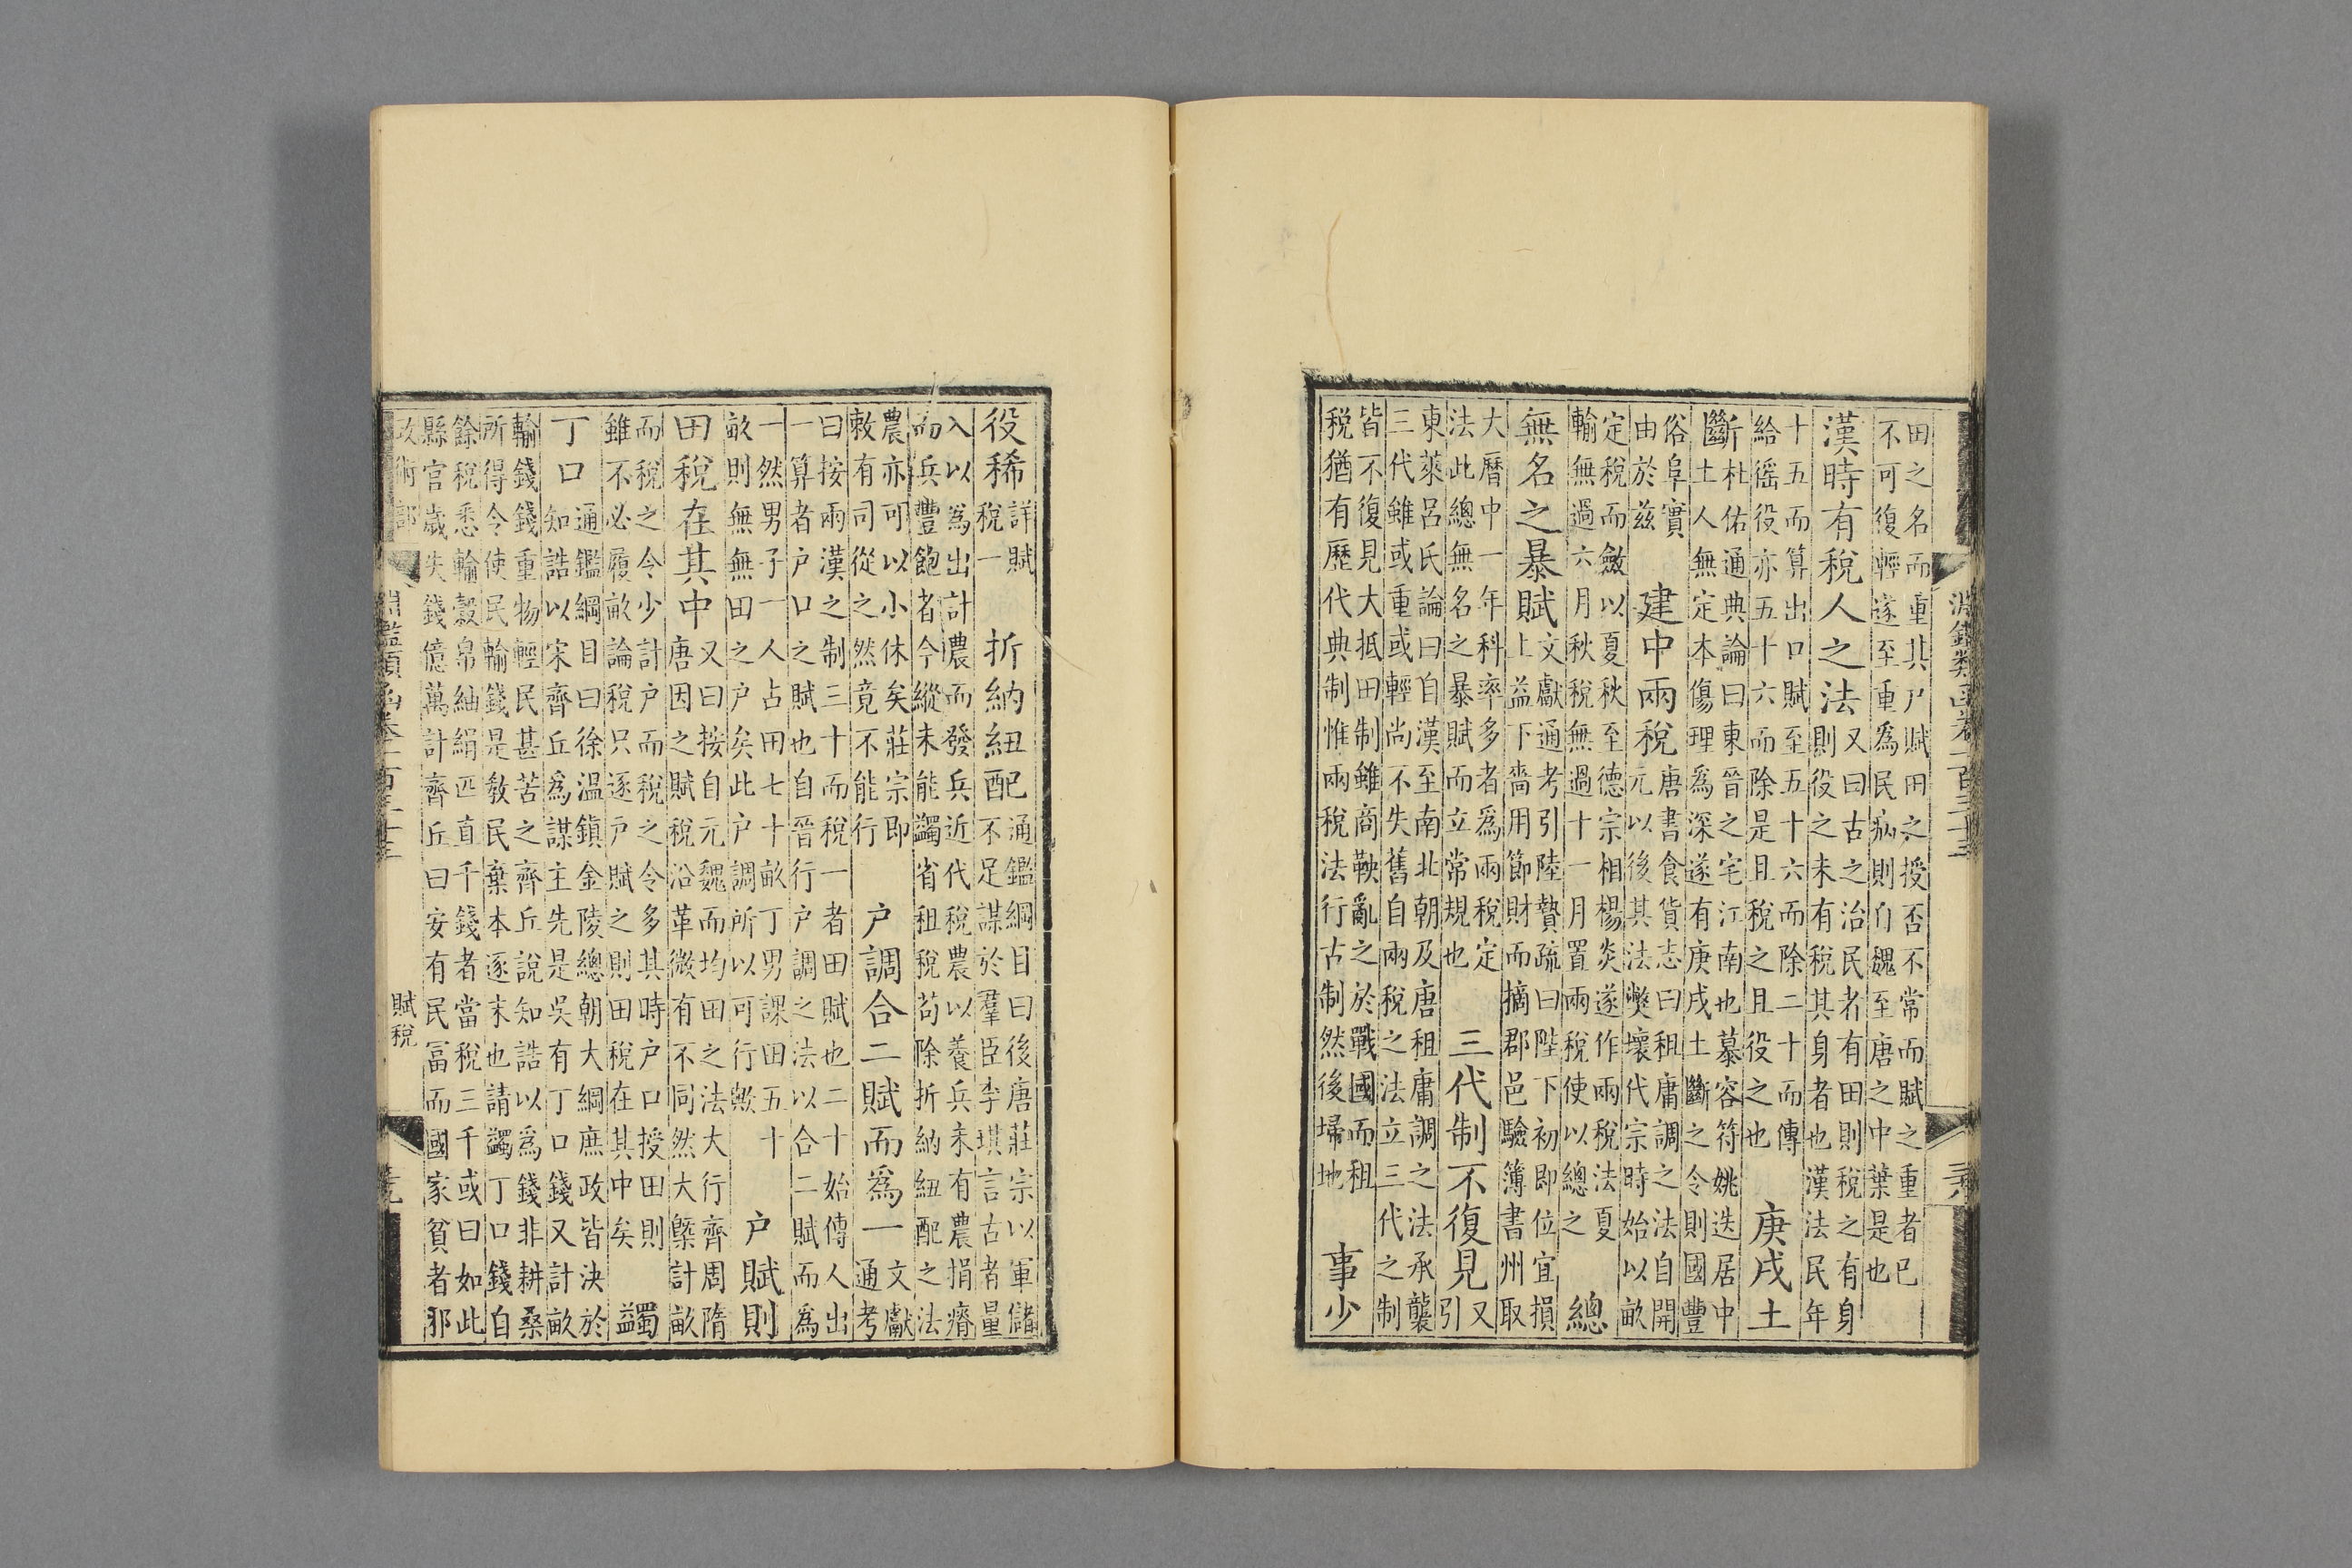 淵鑑類函卷一百三十三
田之名而重其戶賦田之授否不常而賦之重者已
不可復輕遂至重爲民病則自魏至唐之中葉是也
漢時有稅人之法
又曰古之治民者有田則稅之有身
則役之未有稅其身者也漢法民年
十五而算出口賦至五十六而除二十而傅
給徭役亦五十六而除是且稅之且役之也
庚戌土
斷
杜佑通典論曰東晉之宅江南也慕容符姚迭居中
土人無定本傷理爲深遂有庚戌土斷之令則國豐
俗阜實
由於茲
建中兩稅
唐書食貨志曰租庸調之法自開
元以後其法弊壞代宗時始以畝
定稅而斂以夏秋至德宗相楊炎遂作兩稅法夏
輸無過六月秋稅無過十一月置兩稅使以總之
總
無名之暴賦
文獻通考引陸贄疏曰陛下初即位宜損
上益下嗇用節財而摘郡邑驗簿書州取
大曆中一年科率多者爲兩稅定
法此總無名之暴賦而立常規也
三代制不復見
又
引
東萊呂氏論曰自漢至南北朝及唐租庸調之法承襲
三代雖或重或輕尚不失舊自兩稅之法立三代之制
皆不復見大抵田制雖商鞅亂之於戰國而租
稅猶有歷代典制惟兩稅法行古制然後埽地
事少
役稀
詳賦
稅一
折納紐配
通鑑綱目曰後唐莊宗以軍儲
不足謀於羣臣李琪言古者量
入以爲出計農而發兵近代稅農以養兵未有農捐瘠
而兵豐飽者今縱未能蠲省租稅苟除折納紐配之法
農亦可以小休矣莊宗即
敕有司從之然竟不能行
戶調合二賦而爲一
文獻
通考
曰按兩漢之制三十而稅一者田賦也二十始傅人出
一算者戶口之賦也自晉行戶調之法以合二賦而爲
一然男子一人占田七十畝丁男課田五十
畝則無無田之戶矣此戶調所以可行歟
戶賦則
田稅在其中
又曰按自元魏而均田之法大行齊周隋
唐因之賦稅沿革微有不同然大槩計畝
而稅之令少計戶而稅之令多其時戶口授田則
雖不必履畝論稅只逐戶賦之則田稅在其中矣
蠲
丁口
通鑑綱目曰徐溫鎭金陵總朝大綱庶政皆決於
知誥以宋齊丘爲謀主先是吳有丁口錢又計畝
輸錢錢重物輕民甚苦之齊丘說知誥以爲錢非耕桑
所得今使民輸錢是敎民棄本逐末也請蠲丁口錢自
餘稅悉輸穀帛紬絹匹直千錢者當稅三千或曰如此
縣官歲失錢億萬計齊丘曰安有民富而國家貧者邪
政術部
淵鑑類函卷一百三十三
賦稅